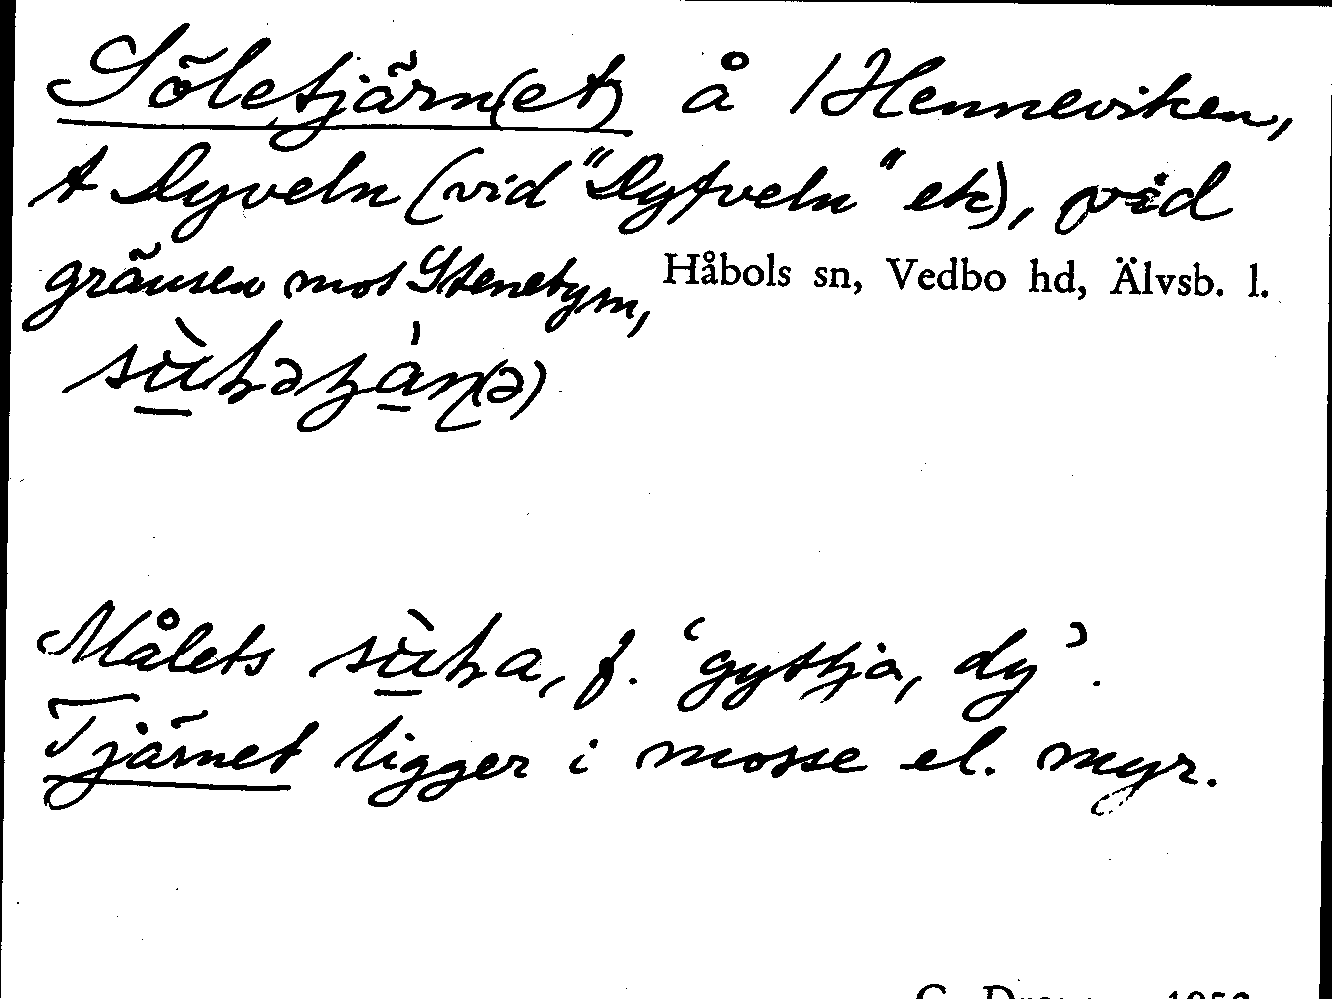 Söletjärn(et) å 1 Henneviken,
t Dyveln (vid "Dyfveln" ek), vid
gränsen mot Stenebyn,
Håbols sn, Vedbo hd, Älvsb. l.
Målets f. 'gyttja, dy'.
Tjärnet ligger i mosse el. myr.